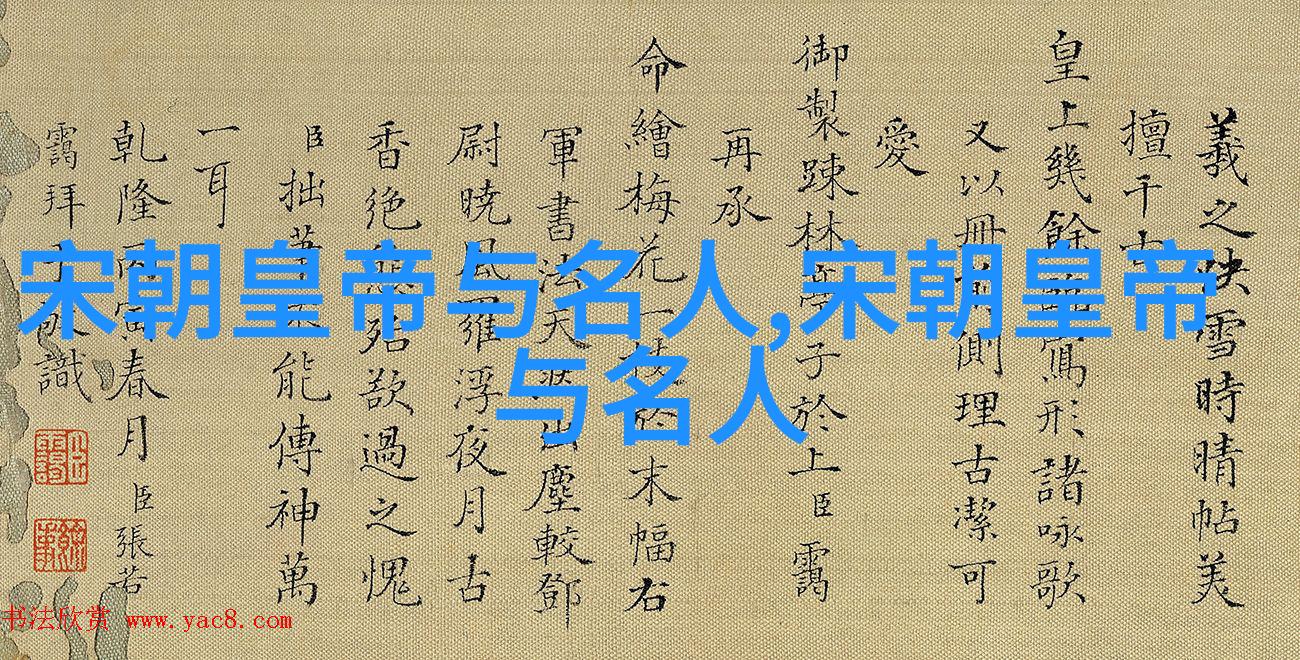 羲之快雪時晴帖美
擅千古
皇上幾餘寫形諸咏歌
又以冊側理古潔可
愛
御製踈林亭子於上臣靄
再承
命繪梅花一枝於末幅右
軍書法天出塵較鄧
尉曉風羅浮夜月古
香絶殆欲過之愧
臣拙筆不能傳神萬
一耳
乾隆丙寅春月臣張若
靄拜手識
宋朝皇帝与名人,宋朝皇帝
与名人
书法欣赏 www.yac8.com